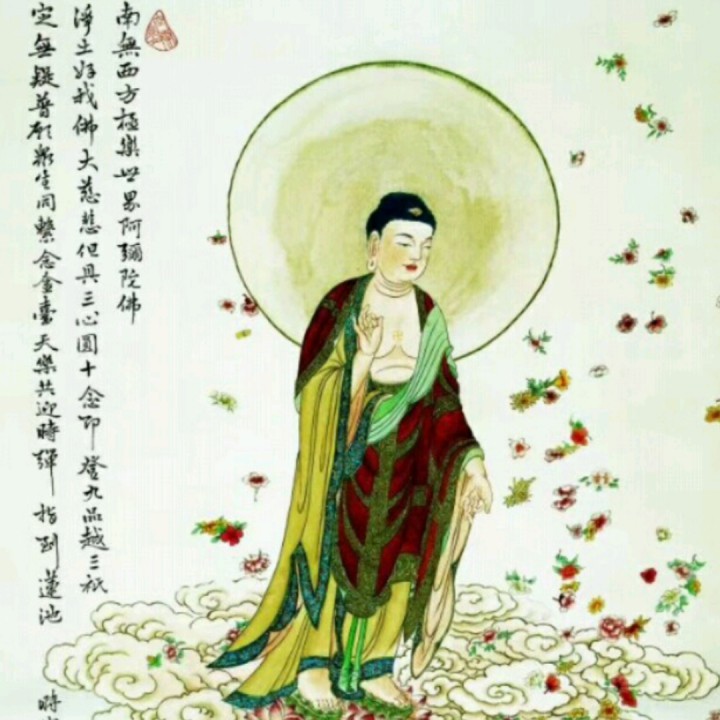 南無西方極樂世界阿彌陀佛
淨土好我佛大慈悲但具三心圓十念即登九品越三祇
定無疑普願衆生同繫念金臺天樂共迎時彈指到蓮池 時